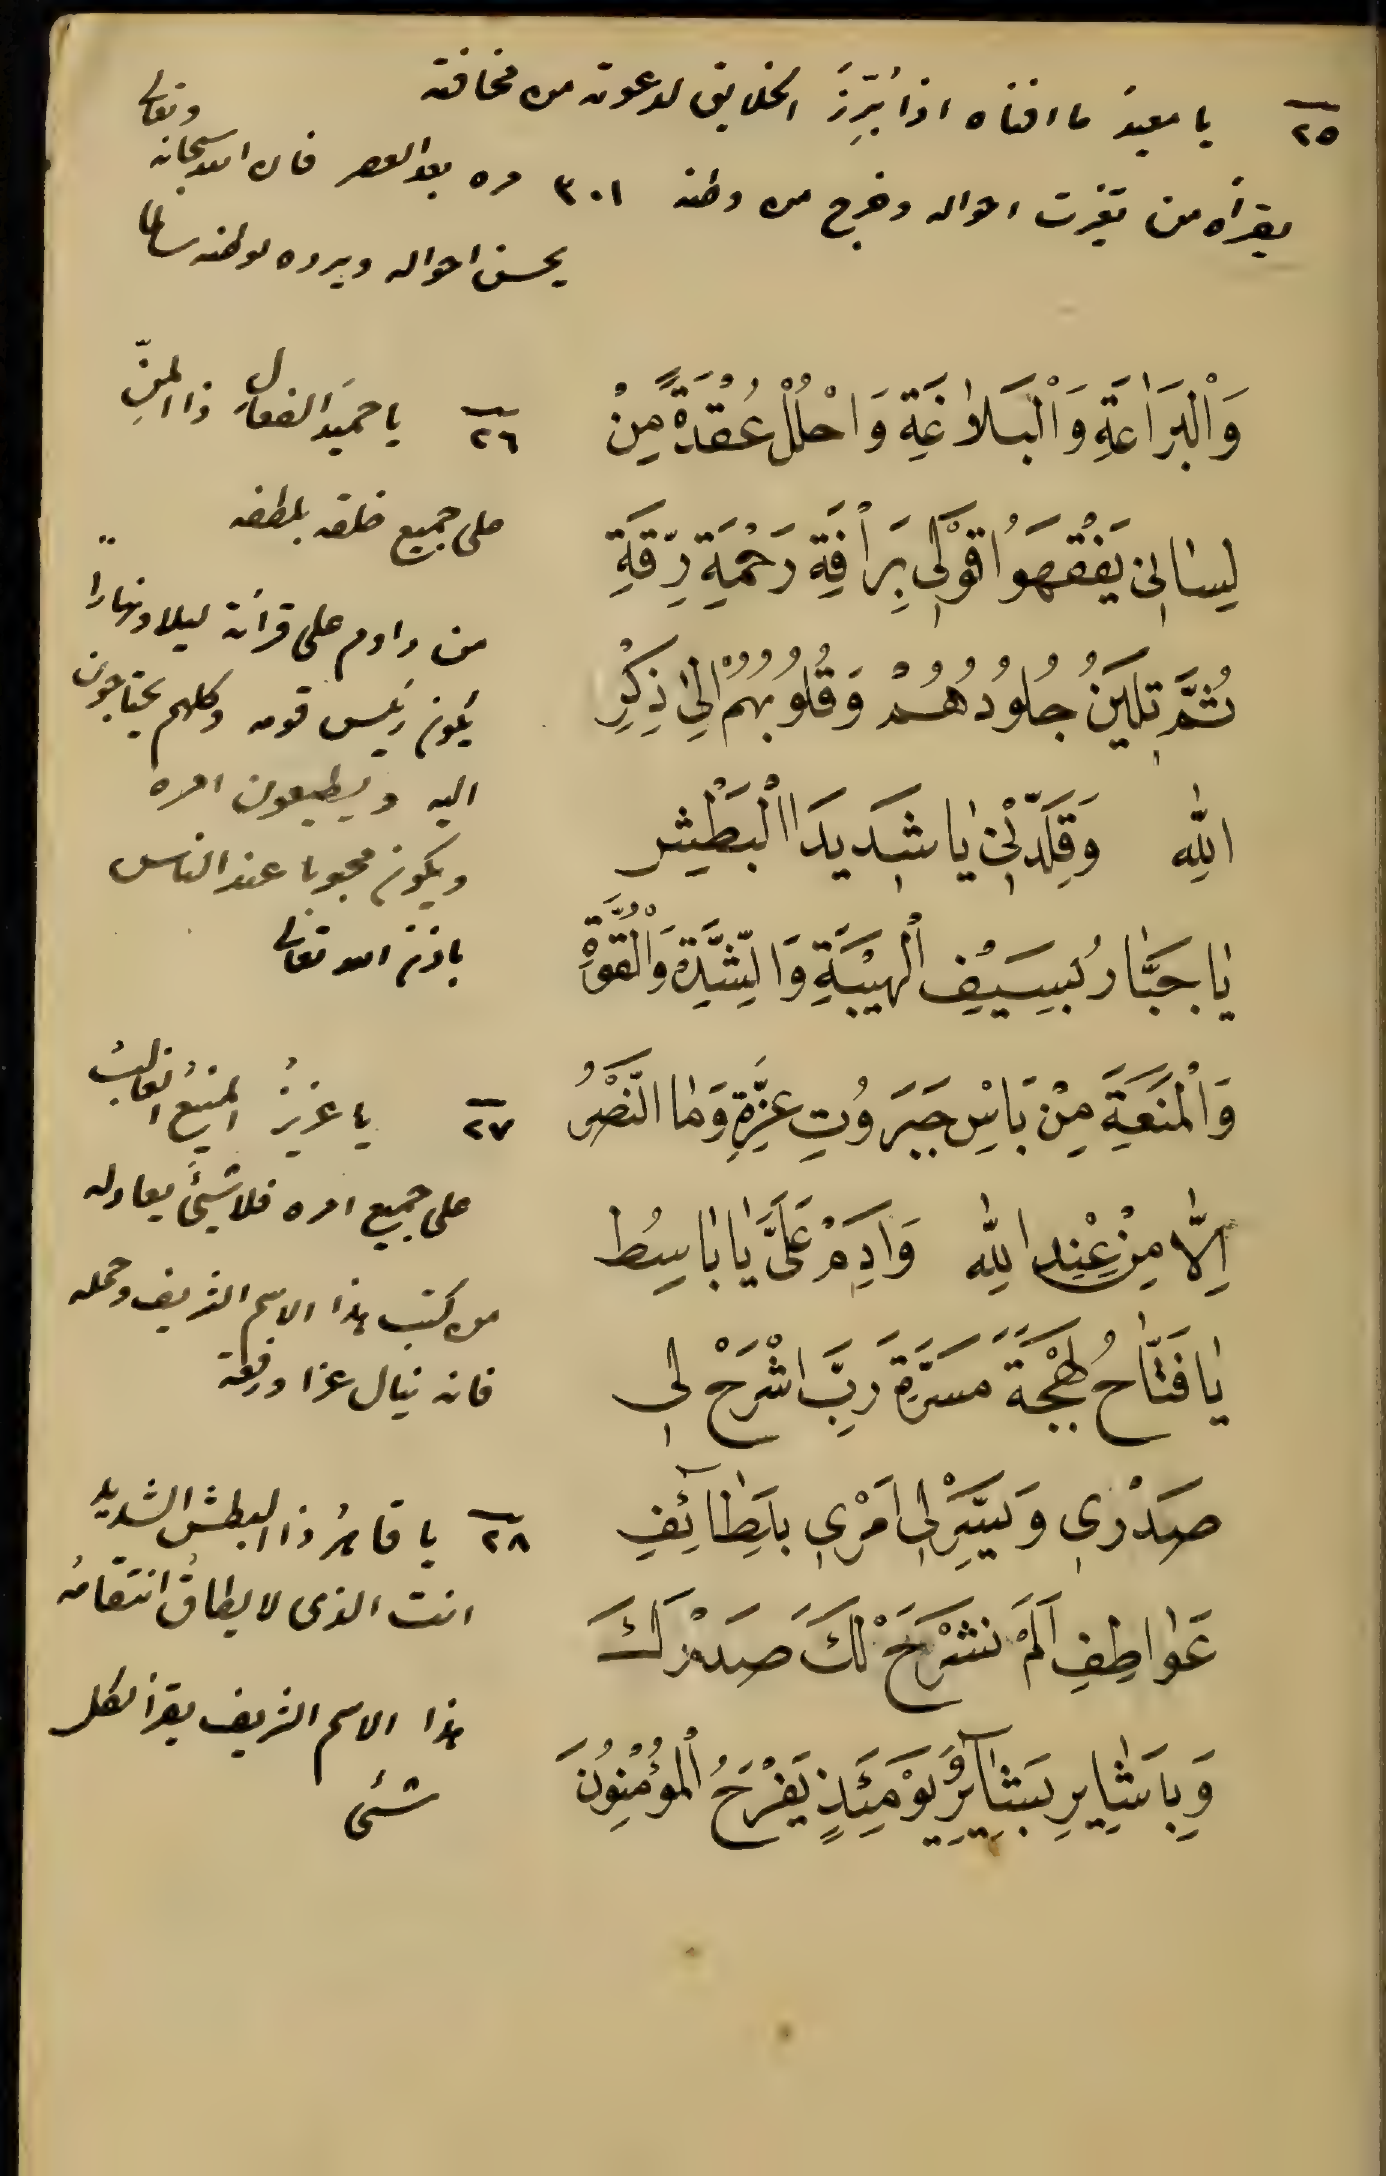 ٢٥ يا معيدُ ما افناه اذا بَرَزَ الخلايق لدعوته من مخافته
يقرأه من تغيرت احواله وخرج من وطنه ٣٠١ مره بعد العصر فان الله سبحانه وتعالى
يحسن احواله ويرده لوطنه سالما
وَالْبَرَاعَةِ وَالْبَلاغَةِ وَاحْلُلْ عُقْدَةً مِنْ
لِسَانِي يَفْقَهُوا قَوْلِي بِرَأفَةِ رَحْمَةِ رِقَّةِ
ثُمَّ تَلِينُ جُلُودُهُمْ وَقُلُوبُهُمْ اِلىٰ ذِكْرِ
اللهِ وَقَلِّدْنِي يَا شَدِيدَ الْبَطْشِ
يَا جَبَّارُ بِسَيْفِ الْهَيْبَةِ وَالشِّدَّةِ وَالْقُوَّةِ
وَالْمَنَعَةِ مِنْ بَاْسِ جَبَرُوتِ عِزَّةِ وَمَا النَّصْرُ
اِلاَّ مِنْ عِنْدِ اللهِ وَاَدِمْ عَلَيَّ يَا بَاسِطُ
يَا فَتَّاحُ بَهْجَةَ مَسَرَّةِ رَبِّ اشْرَحْ لِي
صَدْرِي وَيَسِّرْ لِي اَمْرِي بِلَطَائِفِ
عَوَاطِفِ اَلَمْ نَشْرَحْ لَكَ صَدْرَكَ
وَبِاَشَايِرِ بَشَائِرِ وَيَوْمَئِذٍ يَفْرَحُ الْمُؤْمِنُونَ
٢٦ يا حميدَ الفعال ذا المنِّ
على جميع خلقه بلطفه
من داوم على قرأته ليلا ونهارا
يكون رئيس قومه وكلهم يحتاجون
اليه ويطيعون امره
ويكون محبوبا عند الناس
باذن الله تعالى
٢٧ يا عزيزُ المنيعُ الغالبُ
على جميع امره فلا شيئَ يعادله
من كتب هذا الاسم الشريف وحمله
فانه ينال عزا ورفعة
٢٨ يا قاهرُ ذا البطش الشديد
انت الذى لا يطاقُ انتقامُه
هذا الاسم الشريف يقرأ لكل
شئى